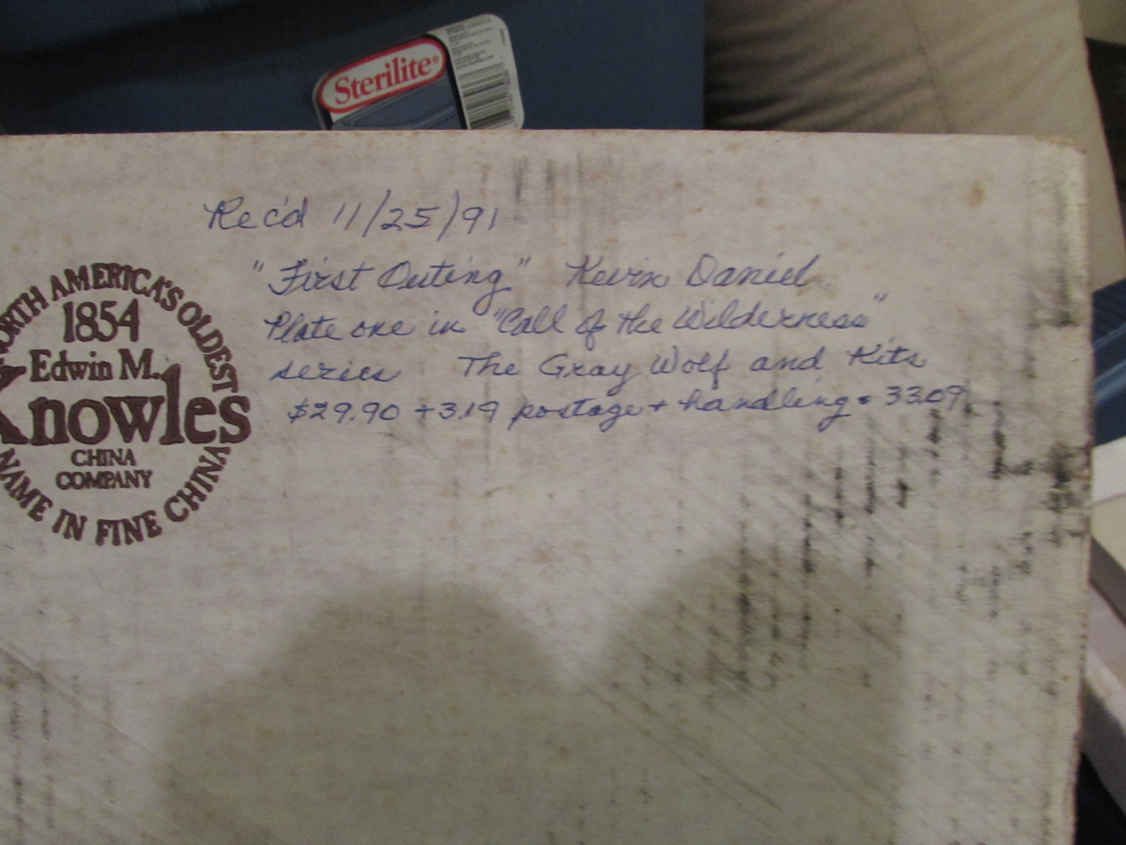 Sterilite®
Rec'd 11/25/91
"First Outing" Kevin Daniel
Plate one in "Call of the Wilderness"
series The Gray Wolf and Kits
$29.90 + 3.19 postage + handling = 33.09
NORTH AMERICA'S OLDEST
1854
Edwin M.
Knowles
CHINA
COMPANY
NAME IN FINE CHINA